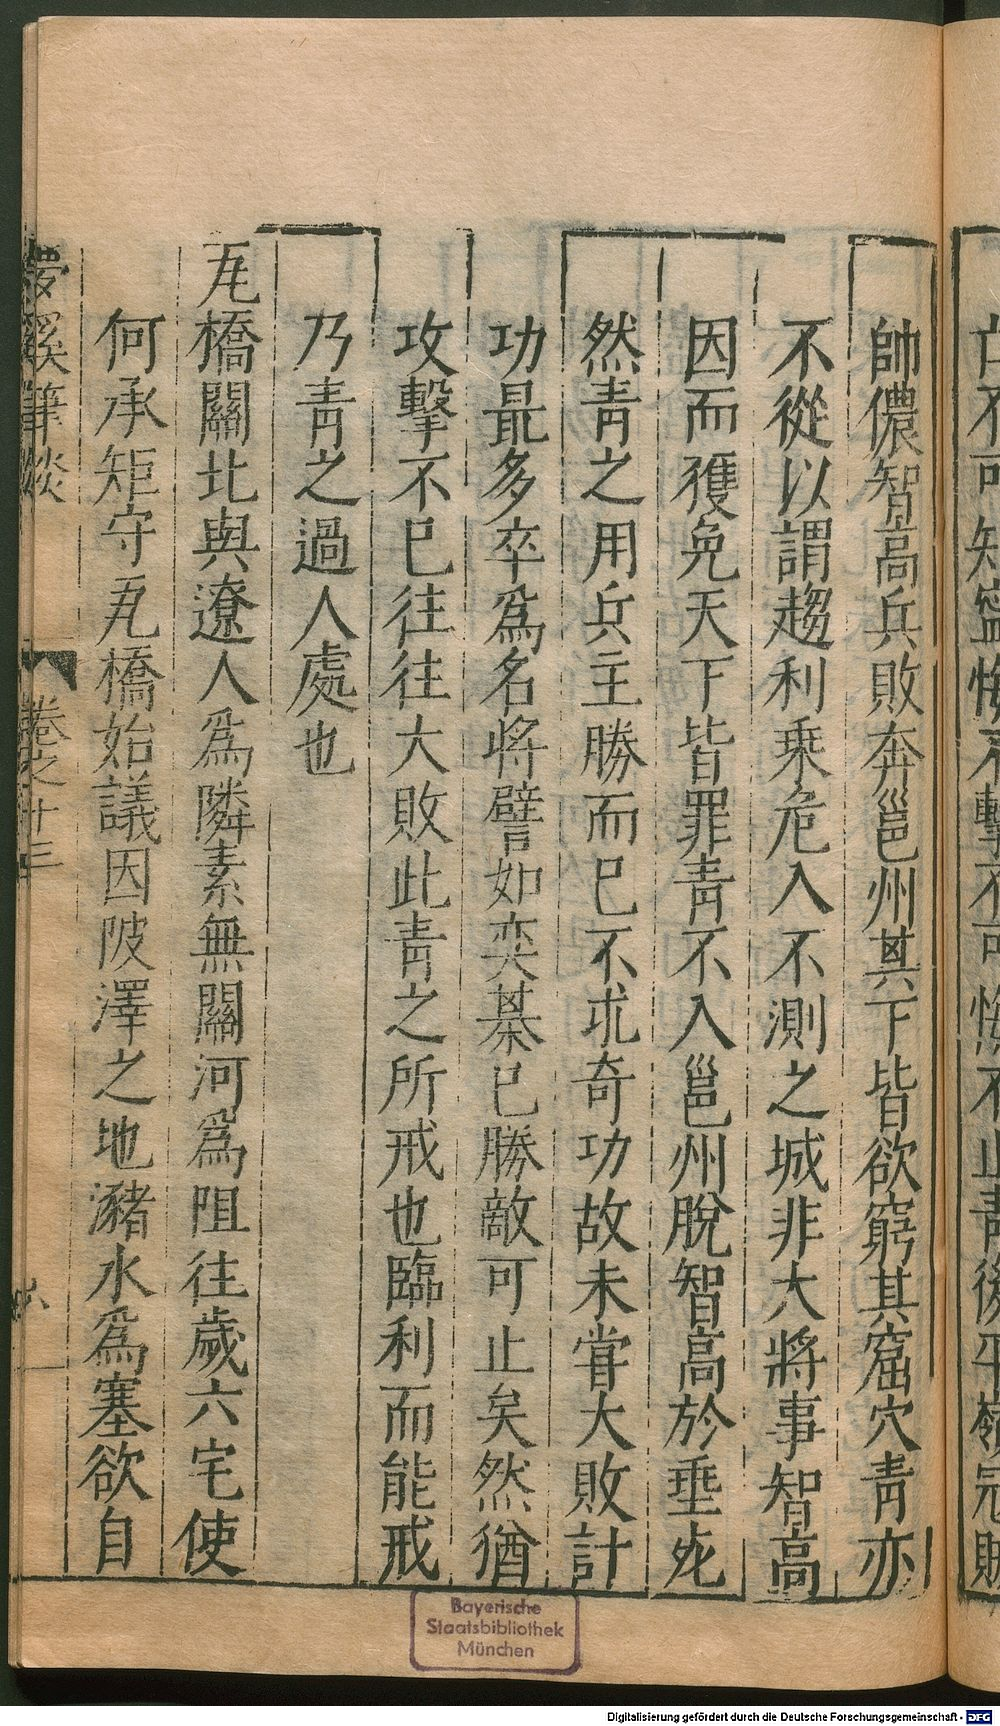 帥儂智高兵敗奔邕州其下皆欲窮其窟穴青亦
不從以謂趨利乗危入不測之城非大將事智高
因而獲免天下皆罪青不入邕州脫智高於垂死
然青之用兵主勝而已不求奇功故未甞大敗計
功最多卒為名將譬如奕棊已勝敵可止矣然猶
攻擊不已往往大敗此青之所戒也臨利而能戒
乃青之過人處也
瓦橋關北與遼人為隣素無關河為阻往歲六宅使
何承矩守瓦橋始議因陂澤之地瀦水為塞欲自
夢溪筆談
卷之十三
六
Bayerische
Staatsbibliothek
München
Digitalisierung gefördert durch die Deutsche Forschungsgemeinschaft - DFG